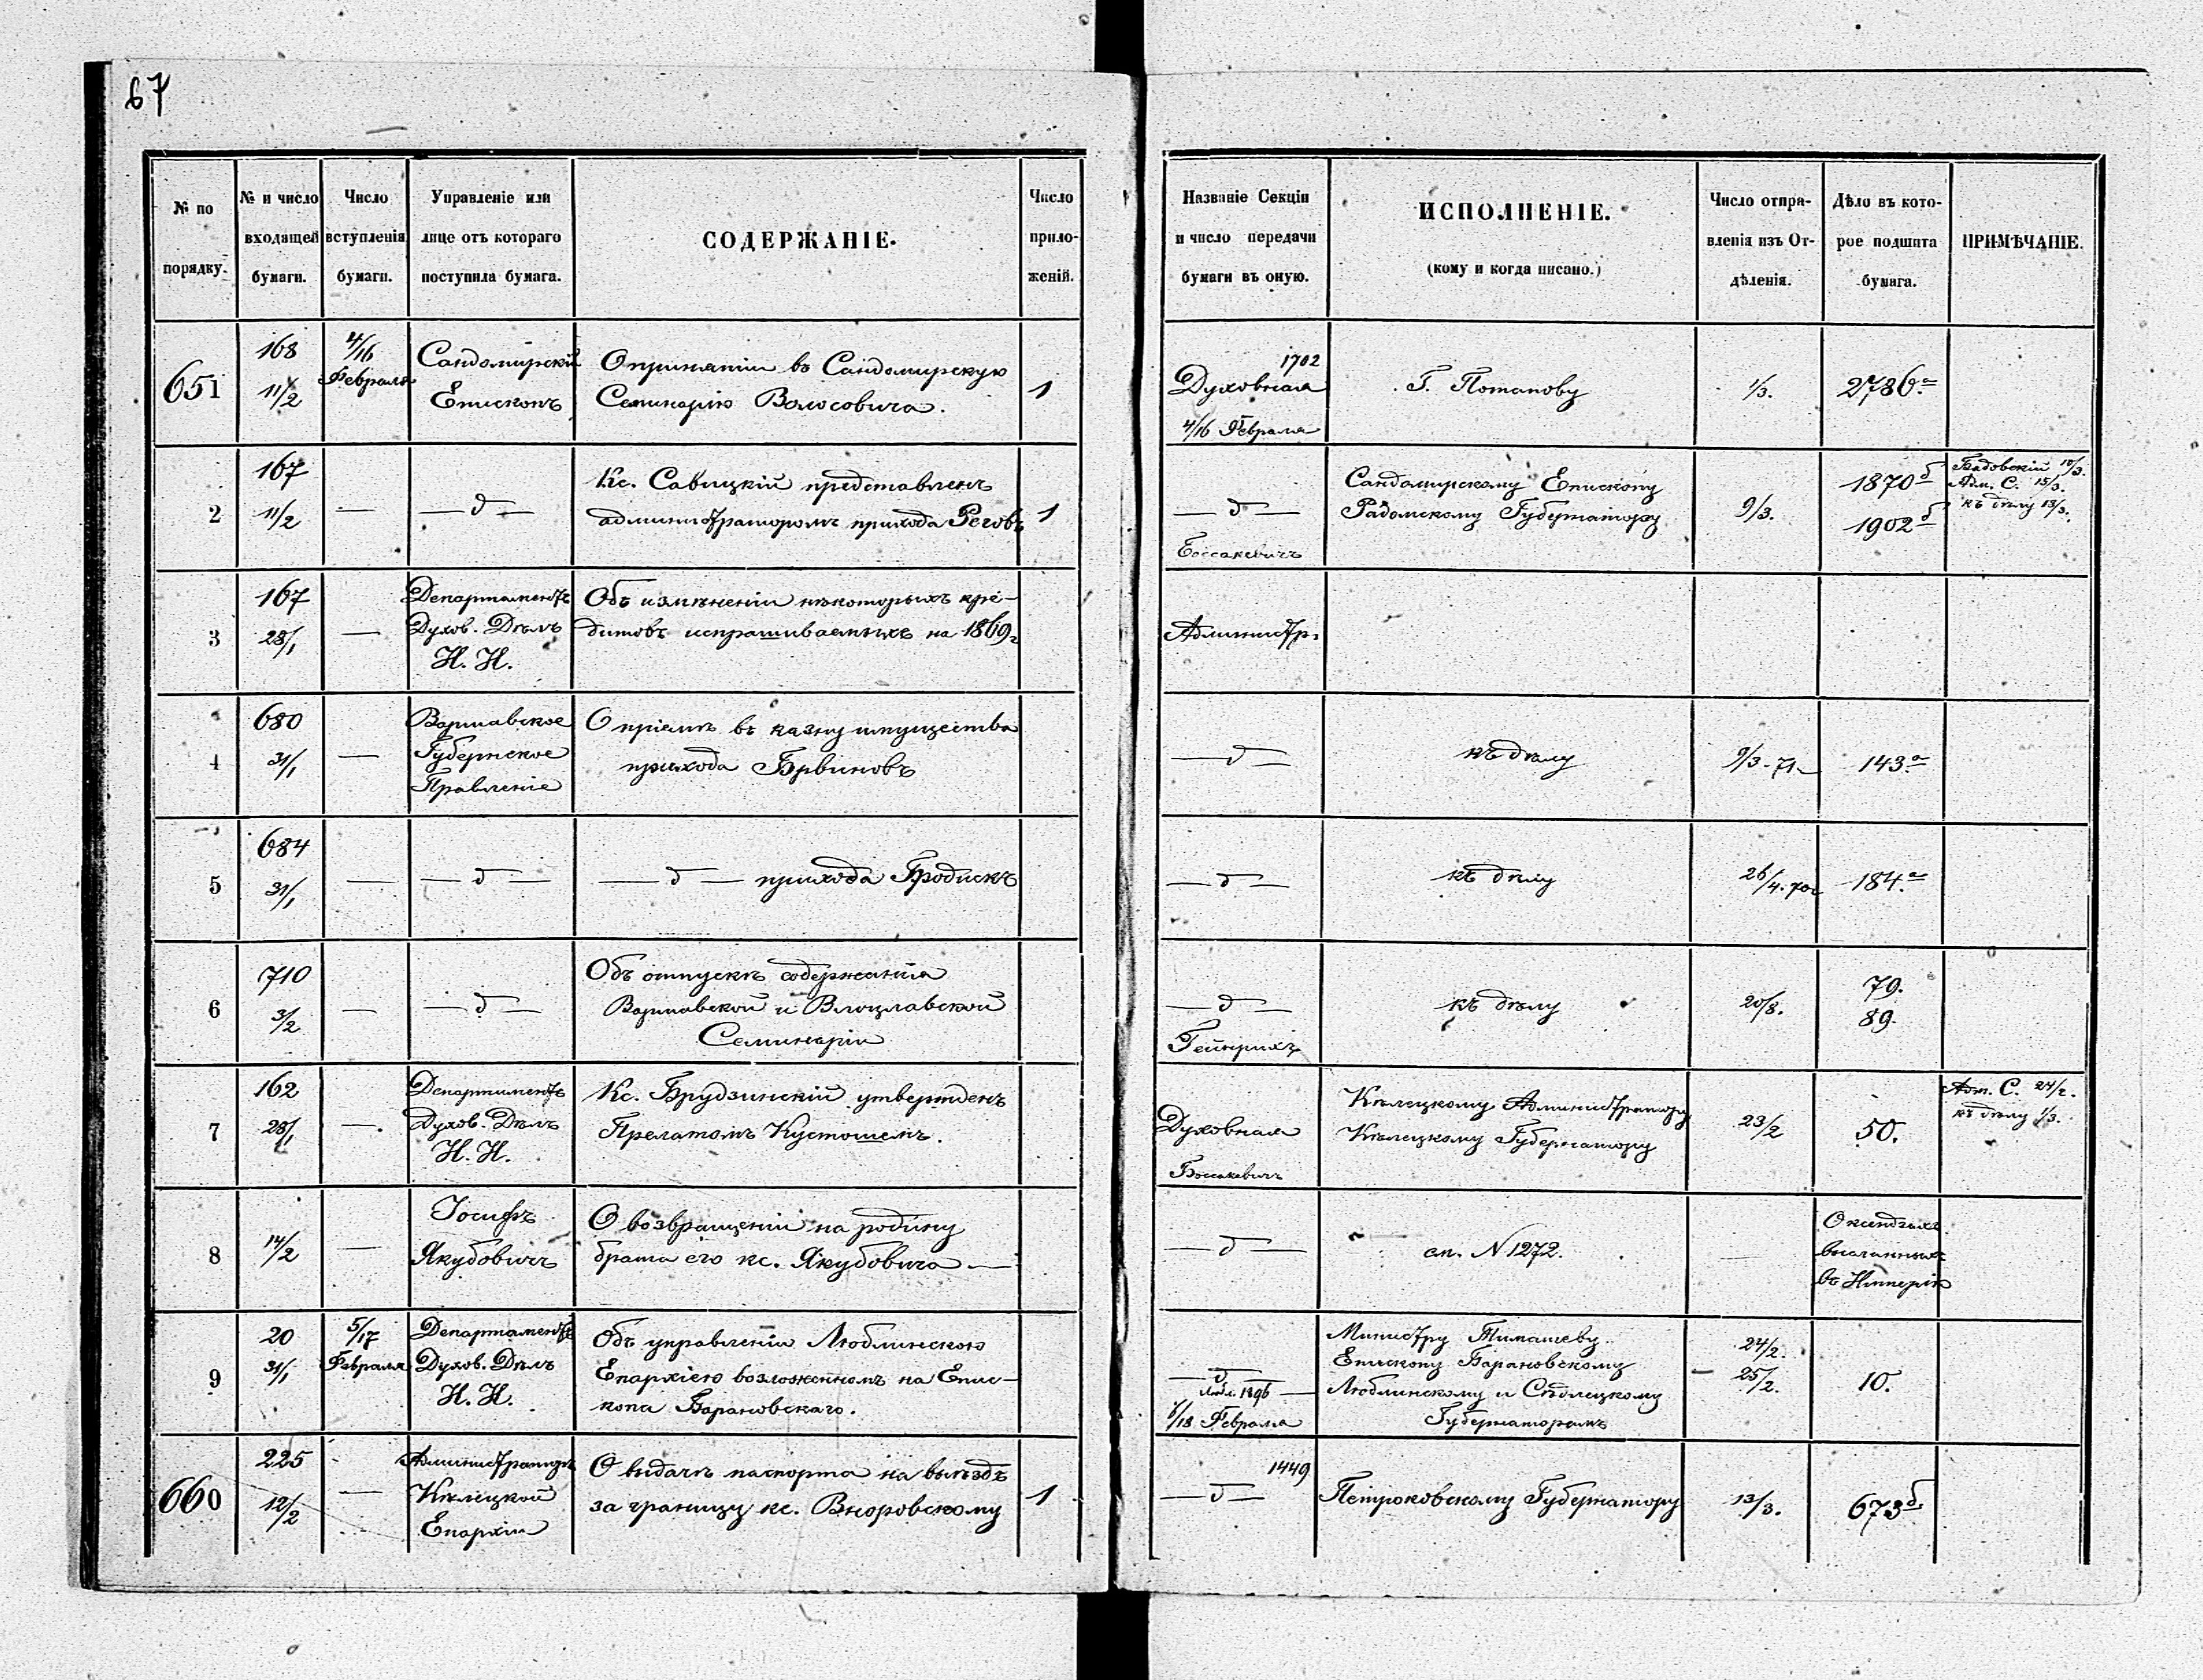 67
№ по порядку.
№ и число входящей бумаги.
Число вступленія бумаги.
Управленіе или лице отъ котораго поступила бумага.
СОДЕРЖАНІЕ.
Число приложеній.
Названіе Секціи и число передачи бумаги въ оную.
ИСПОЛНЕНІЕ.
(кому и когда писано.)
Число отправленія изъ Отдѣленія.
Дѣло въ которое подшита бумага.
ПРИМѢЧАНІЕ.
651
168
11/2
4/16
Февраля
Сандомирскій
Епископъ
О принятіи въ Сандомирскую
Семинарію Волосовича.
1
1702
Духовная
4/16 Февраля
Г. Потапову
1/3.
2786.а
2
167
11/2
—
— д —
Кс. Савицкій представленъ
администраторомъ прихода Реговъ
1
— д —
Боссакевичъ
Сандомирскому Епископу
Радомскому Губернатору
9/3.
1870б
1902б
Адм. С. 15/3.
къ дѣлу 18/3.
3
167
28/1
—
Департаментъ
Духов. Дѣлъ
И. И.
Объ измѣненіи нѣкоторыхъ кре-
дитовъ испрашиваемыхъ на 1869г
Администр.
4
680
31/1
—
Варшавское
Губернское
Правленіе
О пріемѣ въ казну имущества
прихода Брвиновъ
— д —
къ дѣлу
9/3 - 71
143.а
5
684
31/1
—
— д —
— д — прихода Гродискъ
— д —
къ дѣлу
26/4. 70г
184.а
6
710
3/2
—
— д —
Объ отпускѣ содержанія
Варшавской и Влоцлавской
Семинаріи
— д —
Гейнрихъ
къ дѣлу
20/8.
79.
89.
7
162
28/1
—.
Департаментъ
Духов. Дѣлъ
И. И.
Кс. Брудзинскій утвержденъ
Прелатомъ Кустошемъ.
Духовная
Боссакевичъ
Кѣлецкому Администратору
Кѣлецкому Губернатору
23/2
50.
Адм. С. 24/2.
къ дѣлу 1/3.
8
14/2
—
Іосифъ
Якубовичъ
О возвращеніи на родину
брата его кс. Якубовича —
— д —
см. N 1272.
О ксендзахъ
высланныхъ
въ Имперію
9
20
31/1
5/17
Февраля
Департаментъ
Духов. Дѣлъ
И. И.
Объ управленіи Люблинскою
Епархіею возложенномъ на Епис-
копа Барановскаго.
— д —
1896
6/18 Февраля
Министру Тимашеву
Епископу Барановскому
Люблинскому и Сѣдлецкому
Губернаторамъ
24/2.
25/2.
10.
660
225
12/2
—
Администраторъ
Кѣлецкой
Епархіи
О выдачѣ паспорта на выѣздъ
за границу кс. Вноровскому
1
1449
— д —
Петроковскому Губернатору
13/3.
673б.